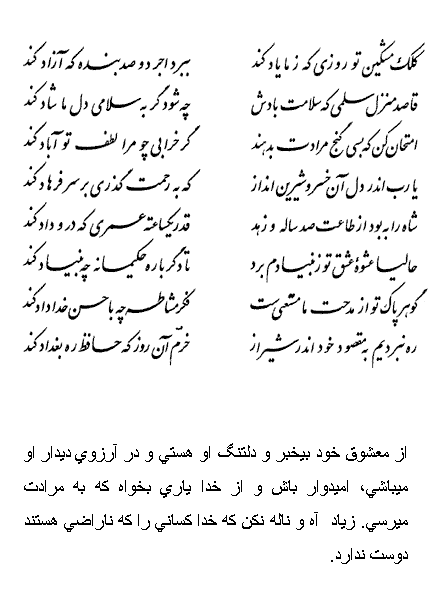 کلک مشکین تو روزی که ز ما یاد کند ببرد اجر دو صد بنده که آزاد کند
قاصد منزل سلمی که سلامت بادش چه شود گر به سلامی دل ما شاد کند
امتحان کن که بسی گنج مرادت بدهند گر خرابی چو مرا لطف تو آباد کند
یا رب اندر دل آن خسرو شیرین انداز که به رحمت گذری بر سر فرهاد کند
شاه را به بود از طاعت صد ساله و زهد قدر یکساعته عمری که در و داد کند
حالیا عشوهٔ عشق تو ز بنیادم برد تا دگر باره حکیمانه چه بنیاد کند
گوهر پاک تو از مدحت ما مستغنی ست فکر مشاطه چه با حسن خداداد کند
ره نبردیم به مقصود خود اندر شیراز خرّم آن روز که حافظ ره بغداد کند
از معشوق خود بيخبر و دلتنگ او هستي و در آرزوي ديدار او
ميباشي، اميدوار باش و از خدا ياري بخواه که به مرادت
ميرسي. زياد آه و ناله نکن که خدا کساني را که ناراضي هستند
دوست ندارد.